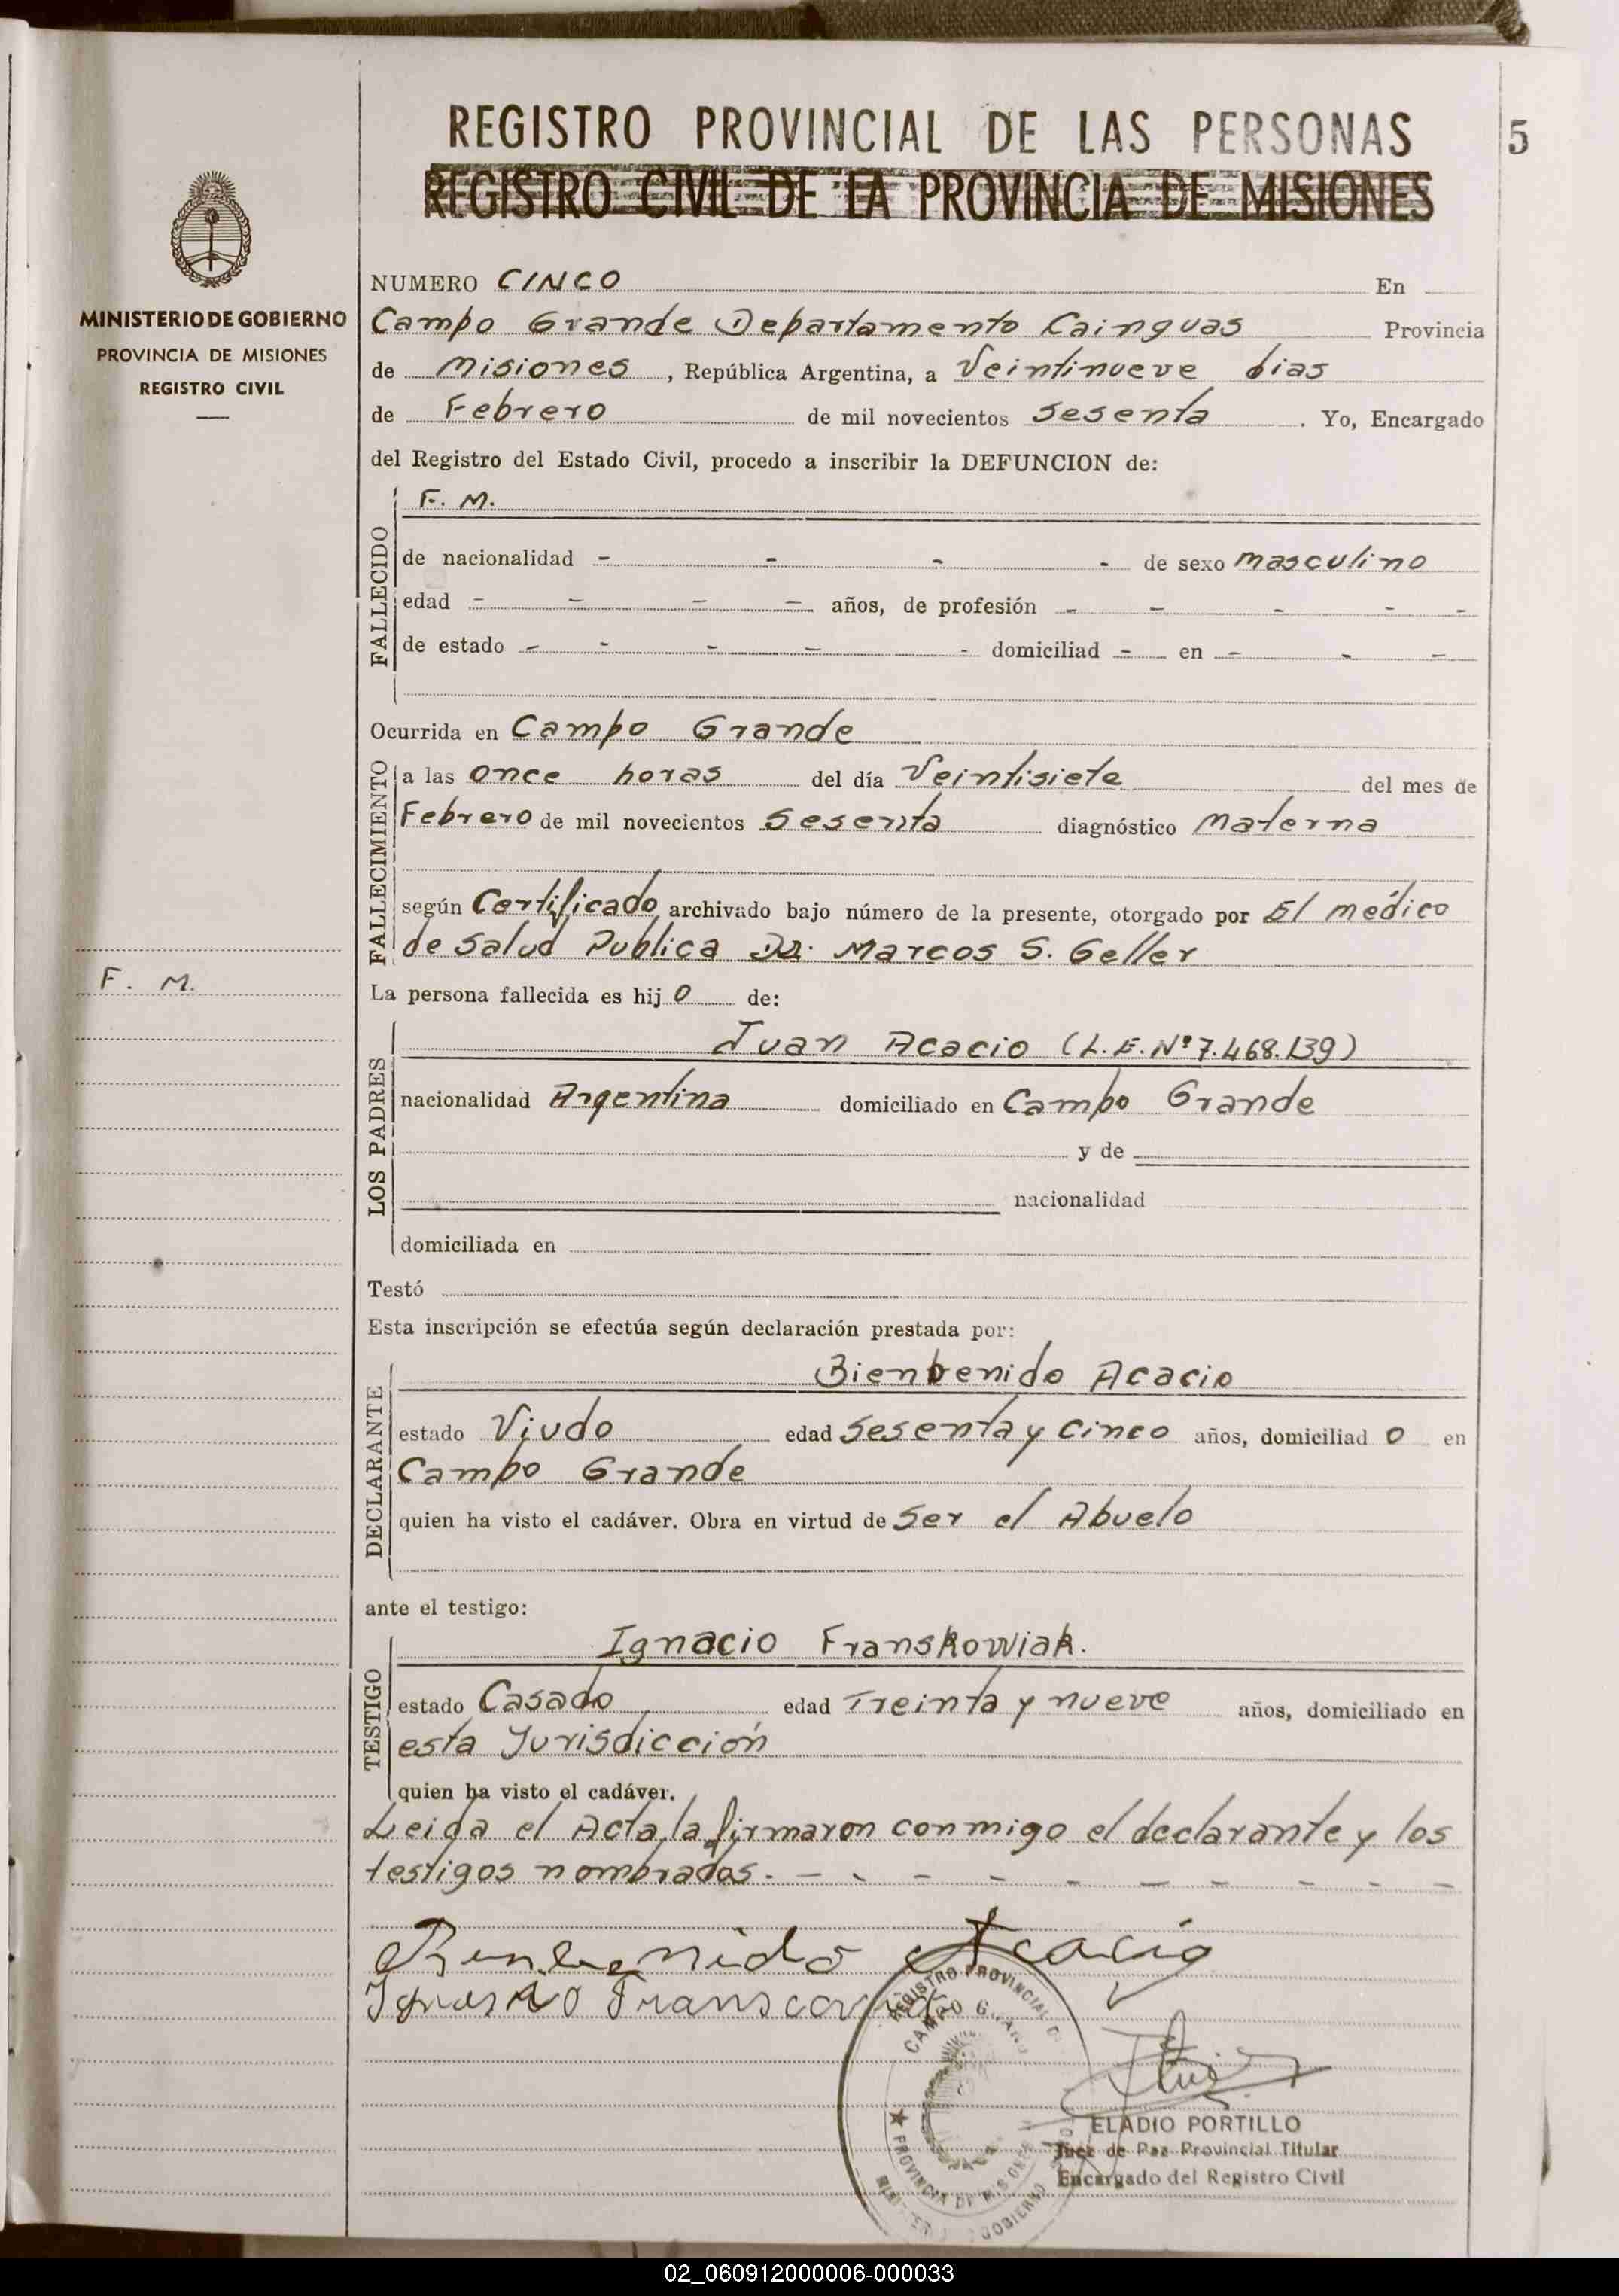 REGISTRO PROVINCIAL DE LAS PERSONAS
5
REGISTRO CIVIL DE LA PROVINCIA DE MISIONES
MINISTERIO DE GOBIERNO
PROVINCIA DE MISIONES
REGISTRO CIVIL
NUMERO CINCO En
Campo Grande Departamento Cainguas Provincia
de Misiones, República Argentina, a Veintinueve dias
de Febrero de mil novecientos Sesenta. Yo, Encargado
del Registro del Estado Civil, procedo a inscribir la DEFUNCION de:
FALLECIDO
F. M.
de nacionalidad - - - - de sexo masculino
edad - - - - años, de profesión - - - - -
de estado - - - - - domiciliad - en - - -
Ocurrida en Campo Grande
FALLECIMIENTO
a las once horas del día Veintisiete del mes de
Febrero de mil novecientos Sesenta diagnóstico Materna
según Certificado archivado bajo número de la presente, otorgado por El médico
de Salud Publica Dr. Marcos S. Geller
F. M.
La persona fallecida es hijo de:
LOS PADRES
Juan Acacio (L.E. Nº 7.468.139)
nacionalidad Argentina domiciliado en Campo Grande
y de
nacionalidad
domiciliada en
Testó
Esta inscripción se efectúa según declaración prestada por:
DECLARANTE
Bienbenido Acacio
estado Viudo edad Sesenta y Cinco años, domiciliad o en
Campo Grande
quien ha visto el cadáver. Obra en virtud de Ser el Abuelo
ante el testigo:
TESTIGO
Ignacio Franskowiak.
estado Casado edad Treinta y nueve años, domiciliado en
esta Jurisdicción
quien ha visto el cadáver.
Leida el Acta, la firmaron conmigo el declarante y los
testigos nombrados. - - - - - - - - - -
Bienbenido Acacio
REGISTRO PROVINCIAL
CAMPO GRANDE
PROVINCIA DE MISIONES
ELADIO PORTILLO
Juez de Paz Provincial Titular
Encargado del Registro Civil
02_060912000006-000033